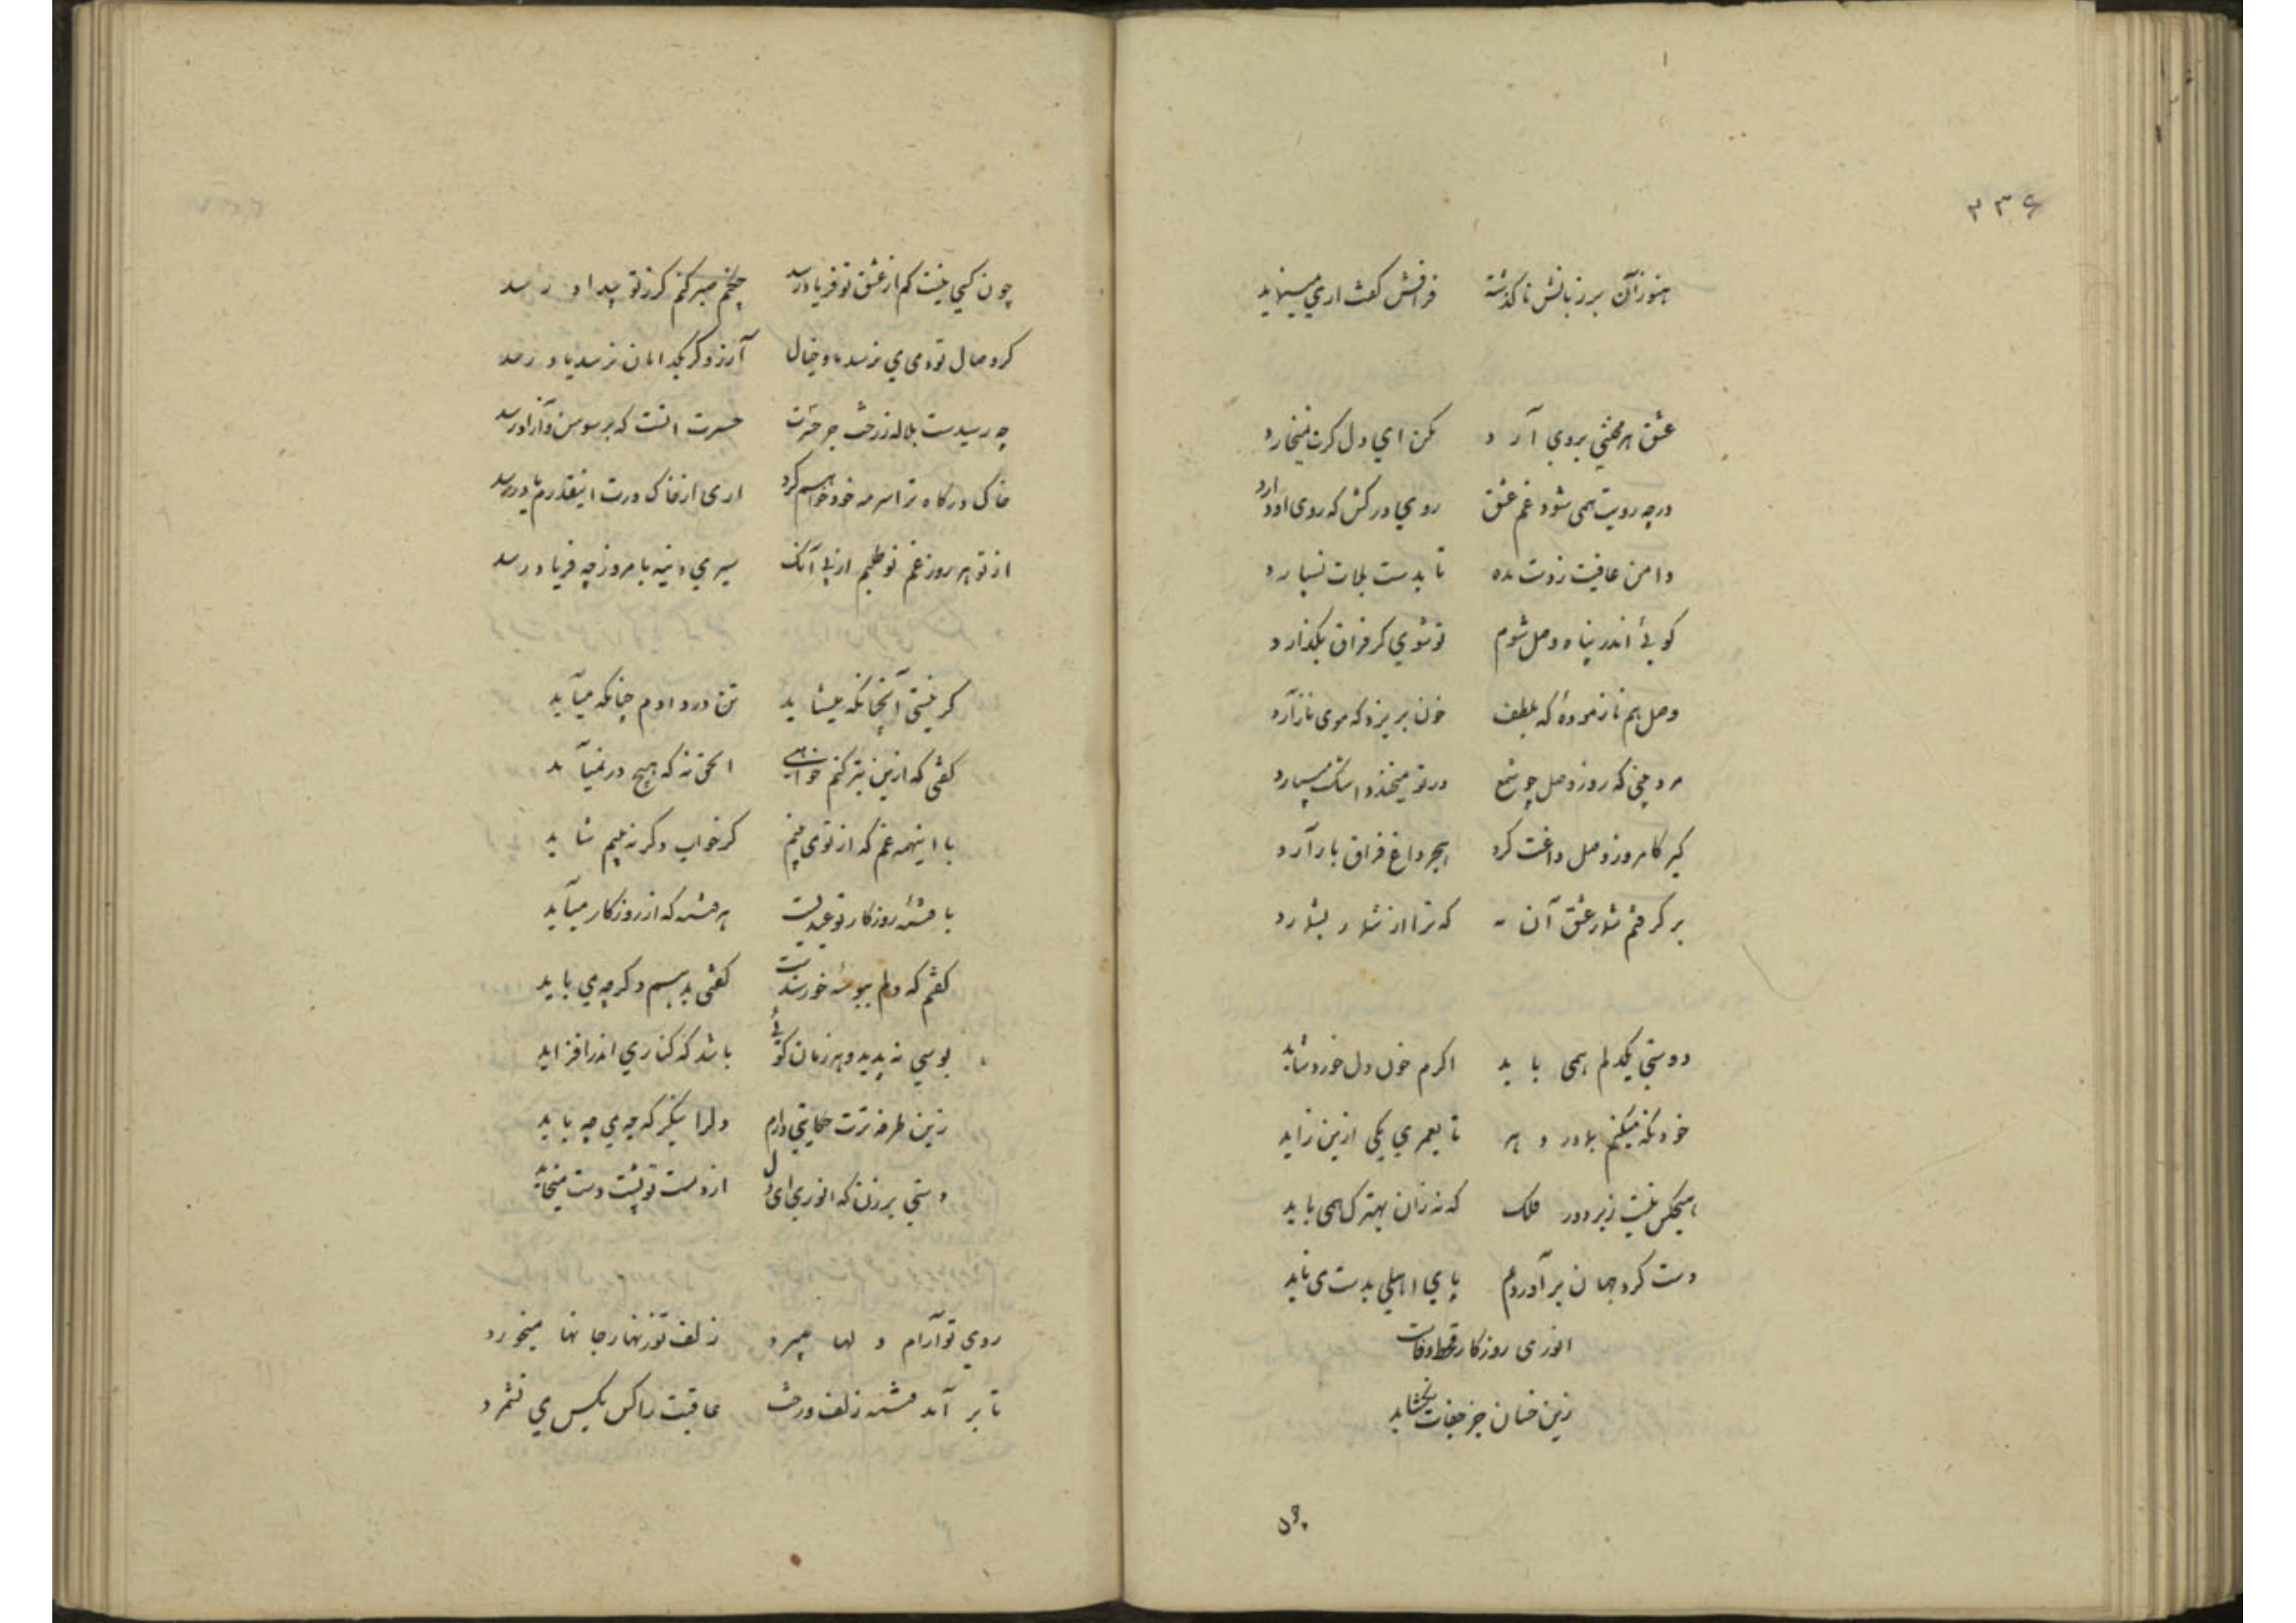 ۲۳۶
هنوز آن بر زبانش ناگذشته فراقش گفت اری مینماید
عشق هر محنتی بروی آرد مکن ای دل گرت نمیخارد
در چه رویت همی شود غم عشق روی درکش که روی او دارد
دامن عافیت زدست مده تا بدست بلات نسپارد
گویی اندر پناه وصل شوم تو شوی گر فراق بگذارد
وصل هم نازموده که بلطف خون بریزد که موی نازارد
مرد مینی که روز وصل چو شمع در تو میخندد اشک میبارد
گیر کامروز وصل داغت کرد هجر داغ فراق بازآرد
برگرفتم شمار عشق آن به که ترا از شمار بشمارد
دوستی یکدلم همی باید اگرم خون دل خورد شاید
خود نگه میکنم بمادر دهر تا بعمری یکی ازین زاید
هیچکس نیست زیر دور فلک که نه زان بهترک همی باید
دست گرد جهان برآوردم پای اهلی بدست می ناید
انوری روزگار قحط وفاست
زین خسان جز جفات نگشاید
چون
چون کسی نیست که از عشق تو فریاد رسد چکنم صبر کنم گر ز تو بیداد رسد
گر وصال تو بمی می نرسد ما و خیال آرزو گر بگدایان نرسد یاد رسد
چه رسیدست بلاله ز رخت جز حسرت حسرت انست که بر سوسن و آزاد رسد
خاک درگاه ترا سرمه خود خواهم کرد اری از خاک درت اینقدرم باد رسد
از تو هر روز غم نو طلبم از پی آنک سیری دینه بامروز چه فریاد رسد
گر نیستی آنچنانکه میشاید تن در دادم چنانکه میآید
گفتی که ازین بتر کنم خواهی الحق نه که هیچ در نمیآید
با اینهمه غم که از تو می بینم گر خواب دگر نبینم شاید
با فتنه روزگار تو عیدیست هر فتنه که از روزگار میآید
گفتم که دلم ببوسه خورسندست گفتی بدهم دگر چه می باید
بوسی ندهید و هر زمان گوئی باشد که کناری اندر افزاید
زین طرفه ترت حکایتی دارم دلرا بنگر که چه می چه باید
دستی بر زن که انوری ای دل از دست تو پشت دست میخاید
روی تو آرام دلها میبرد زلف تو زنهار جانها میخورد
تا برآمد فتنه زلف و رخت عافیت را کس بکس می نشمرد